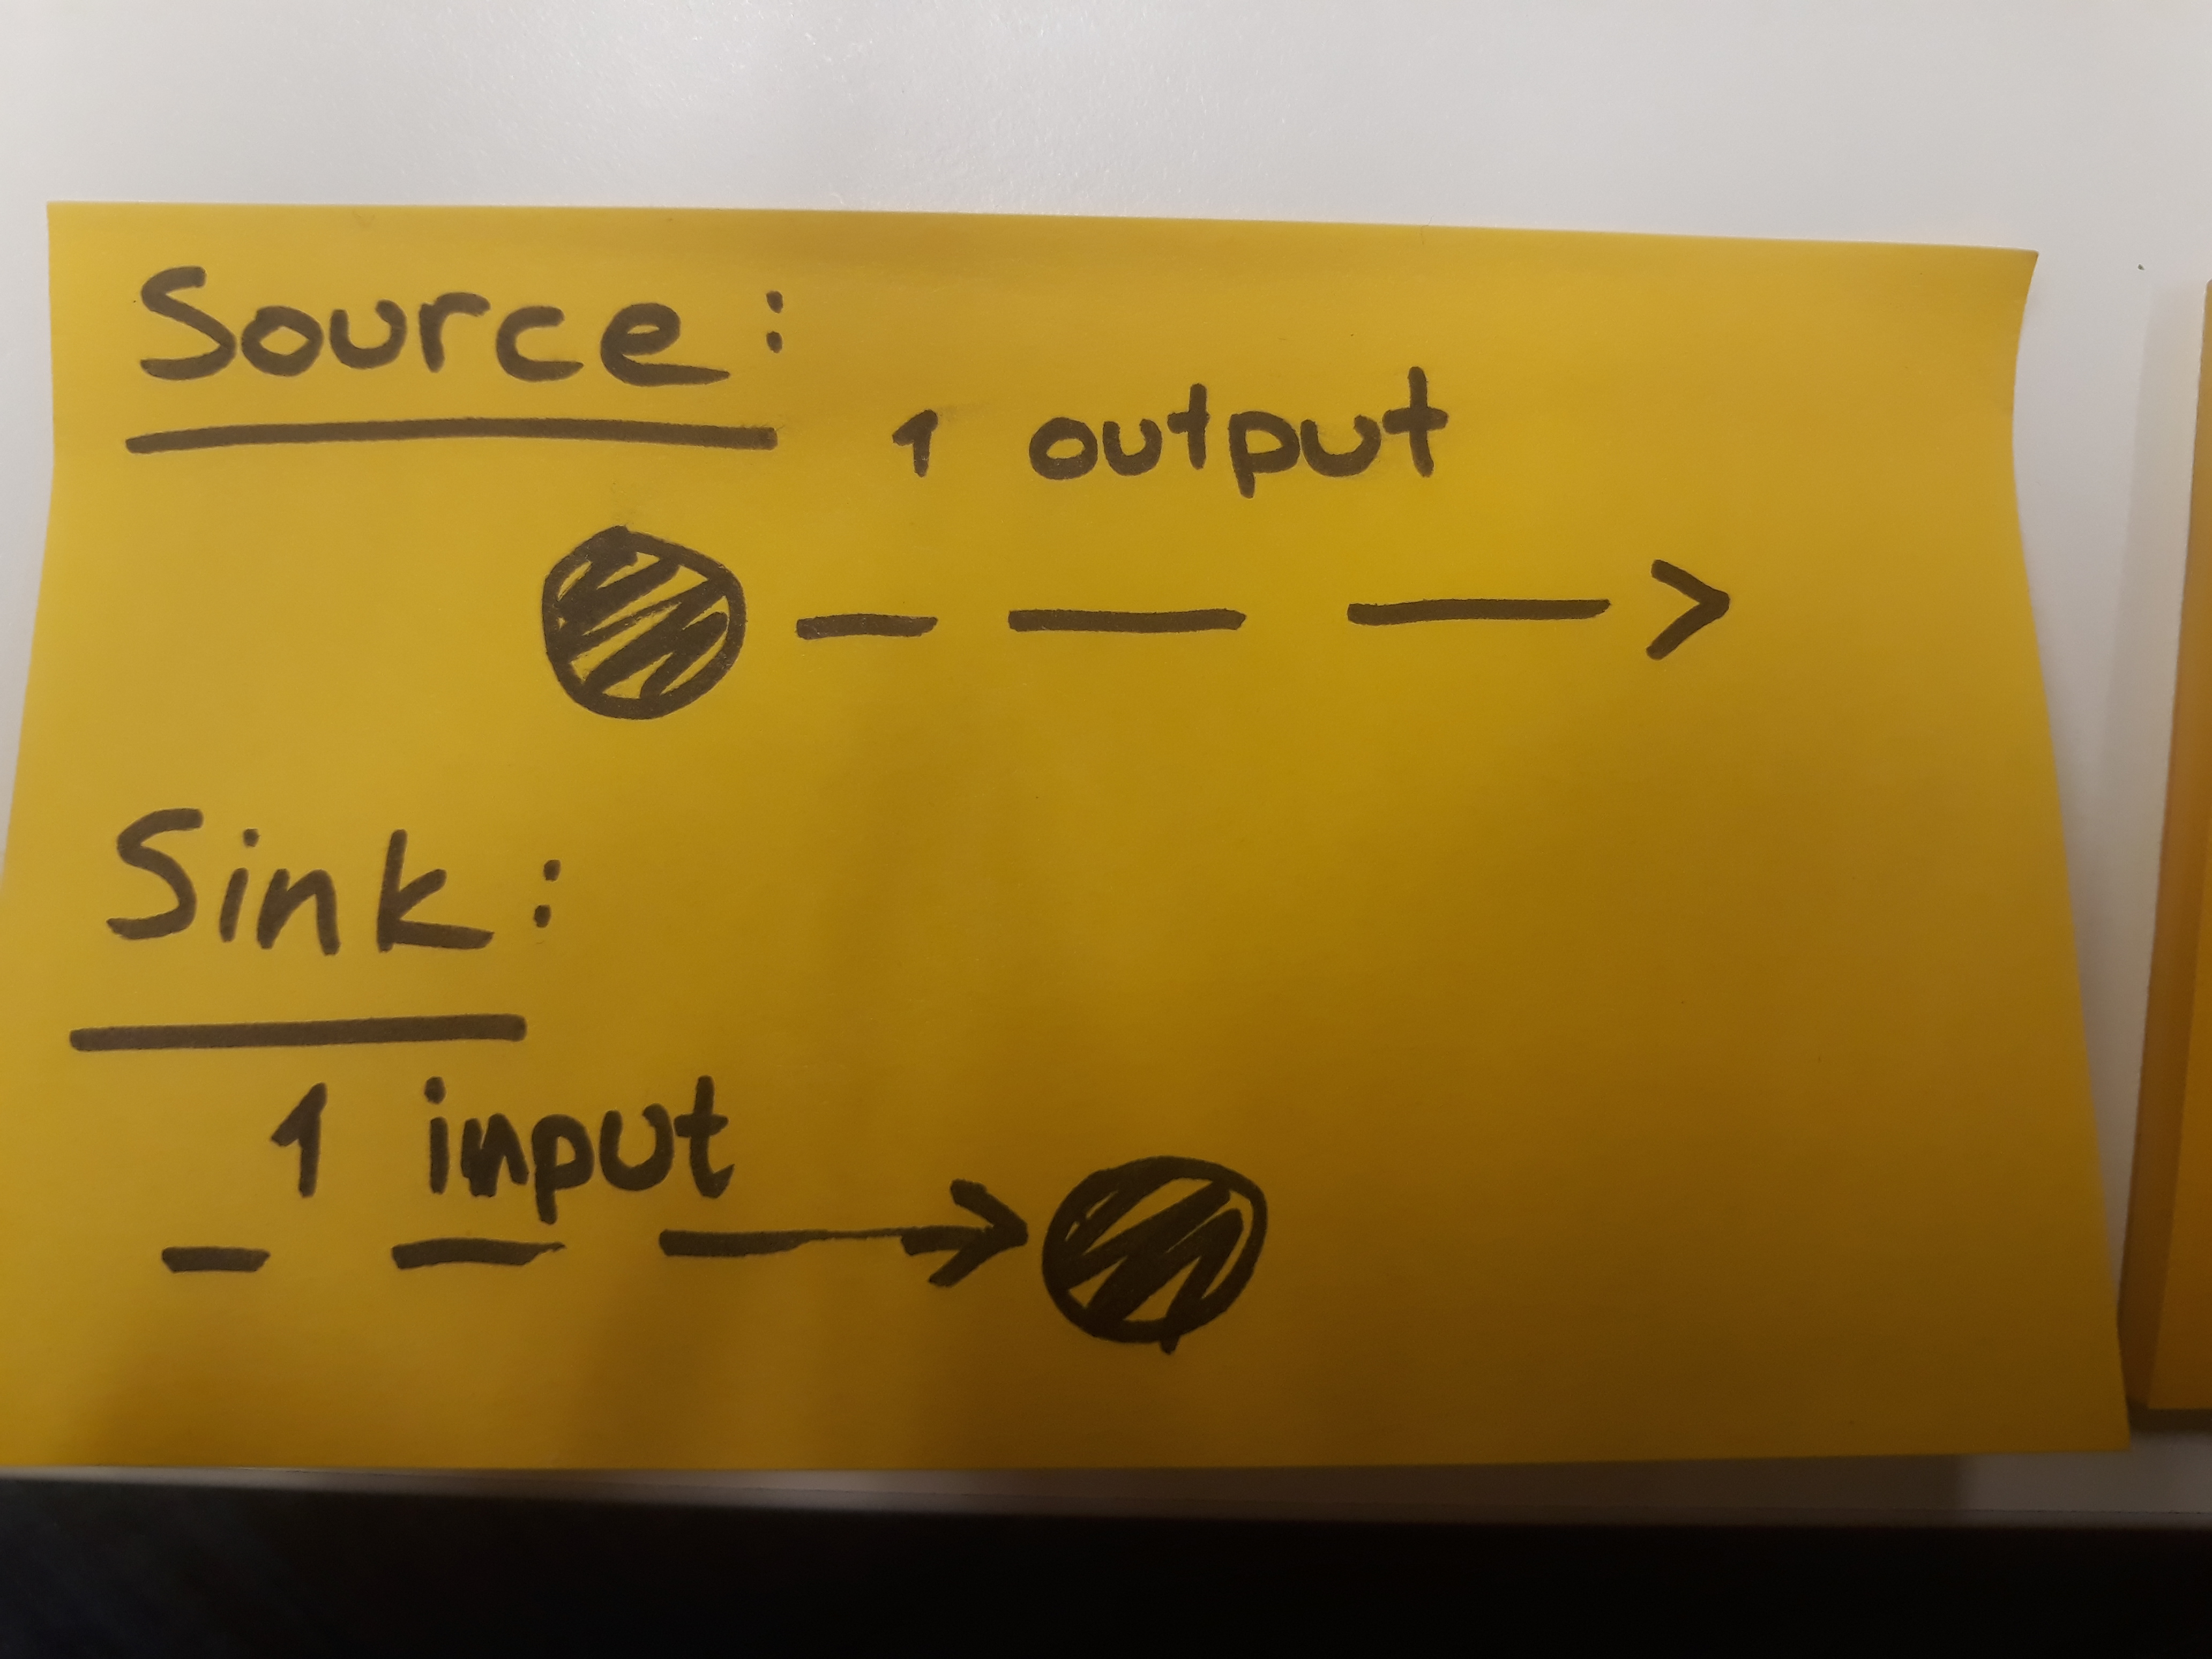 Source:
1 output
Sink:
1 input